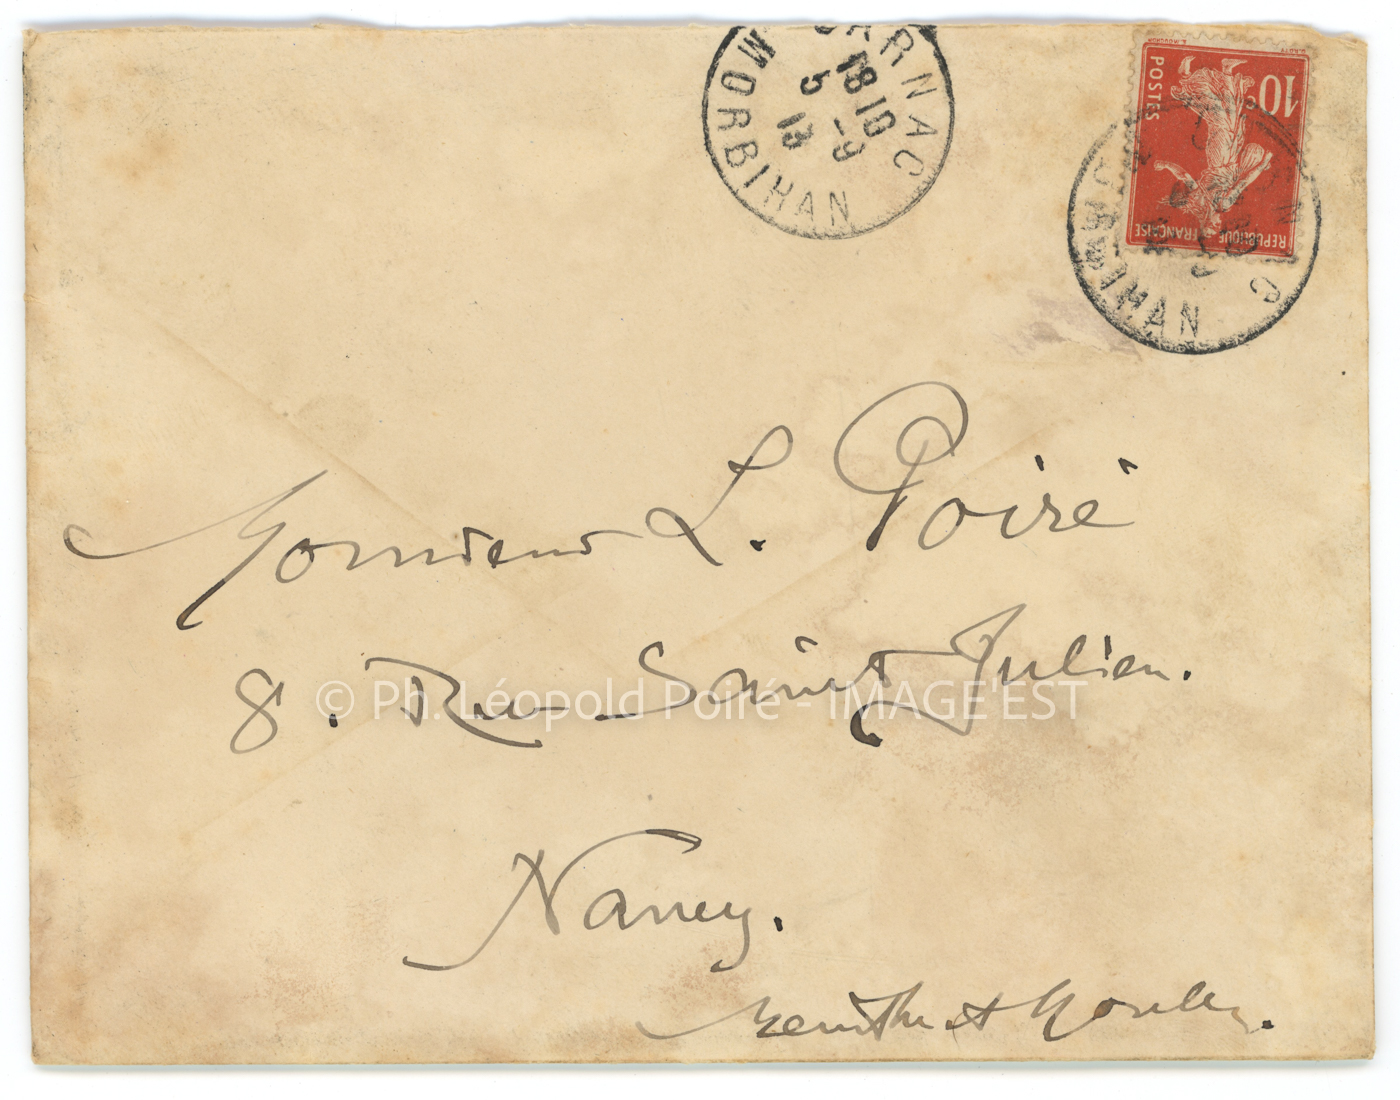 CARNAC
18 10
5 -9
13
MORBIHAN
10c
POSTES
REPUBLIQUE FRANÇAISE
Monsieur L. Poiré
8. Rue Saint Julien.
© Ph. Léopold Poiré - IMAGE'EST
Nancy.
Meurthe et Moselle.